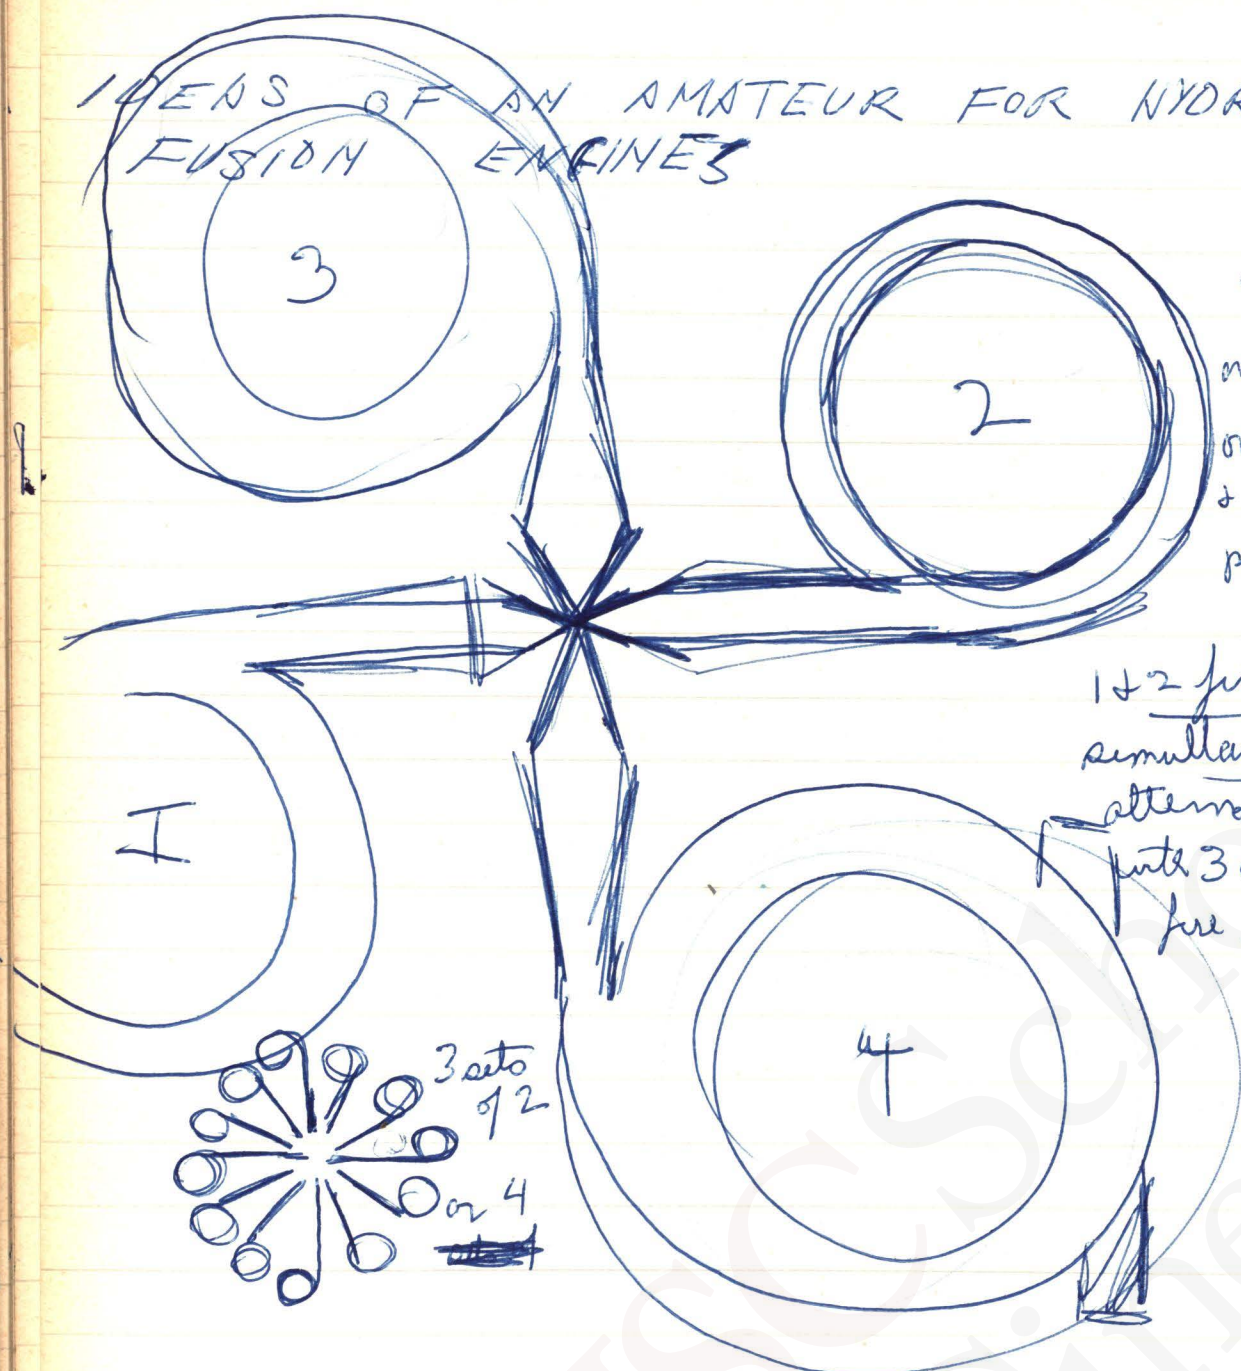 IDEAS OF AN AMATEUR FOR HYDR
FUSION ENGINES
3
2
1 & 2
simultan
alterna
3
fire
I
4
3 sets
of 2
or 4